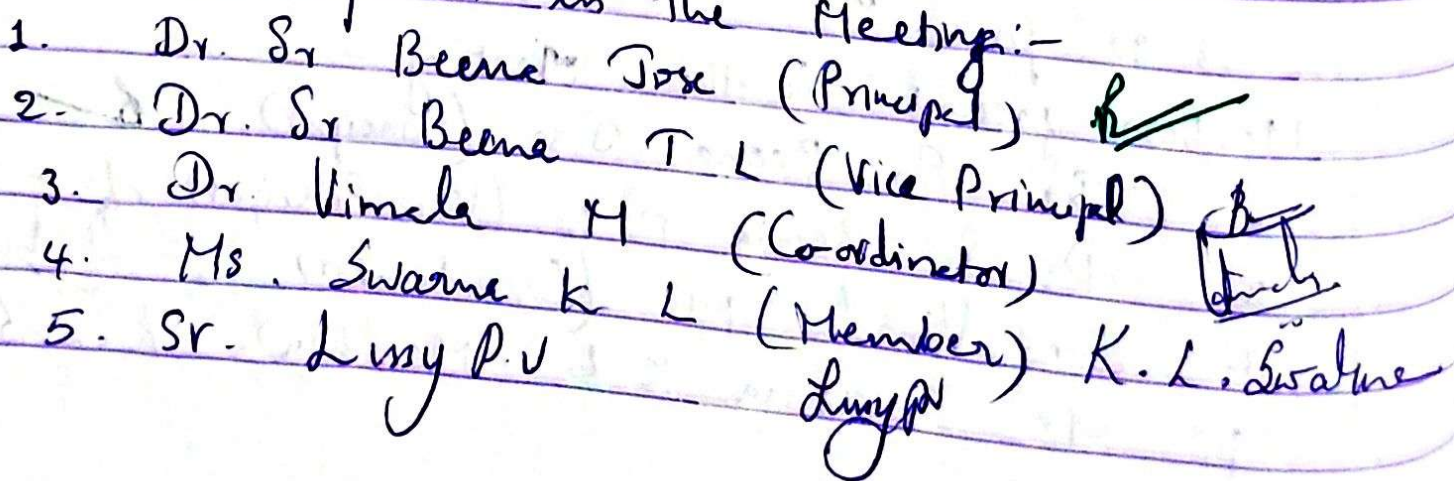 the Meeting:-
1. Dr. Sr Beena Jose (Principal)
2. Dr. Sr Beena T L (Vice Principal)
3. Dr. Vimala M (Co-ordinator)
4. Ms. Swarna K L (Member) K. L. Swarna
5. Sr. Lussy P.V